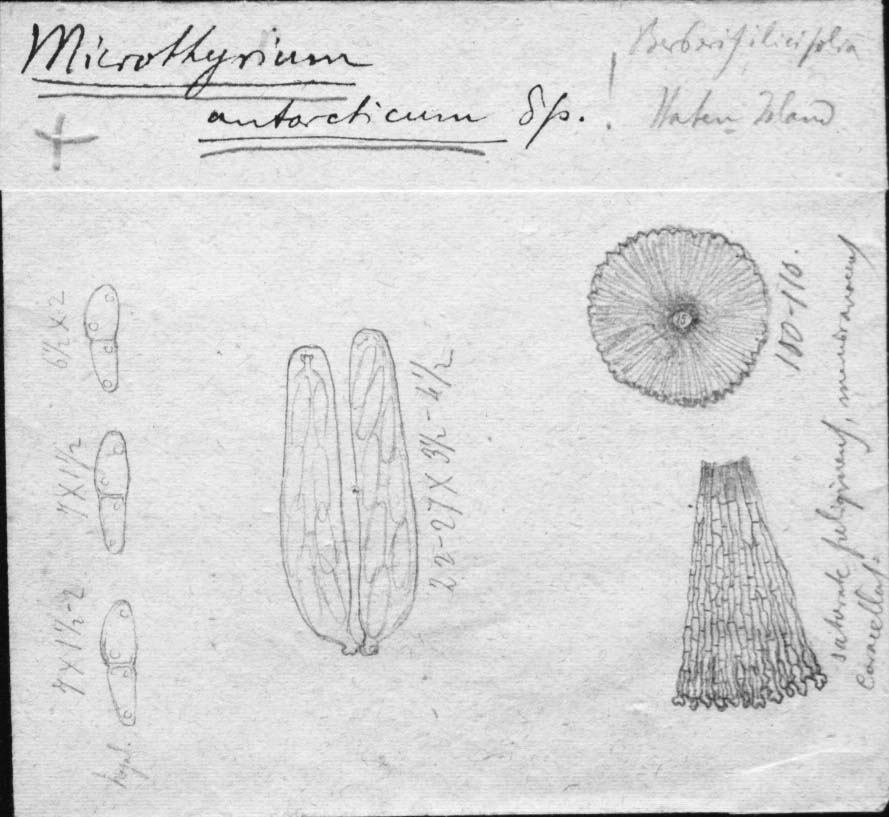 Microthyrium
antarcticum Sp. !
Berberis ilicifolia
Staten Island
+
6½ X 2
7 X 1½
7 X 1½-2
hyal.
22-27 X 3½-4½
100-110.
saturate fuligineus, membranaceus